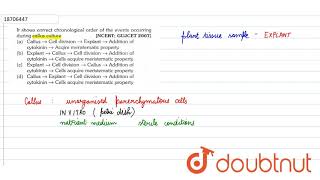 18706447
It shows correct chronological order of the events occurring
during callus culture [NCERT; GUJCET 2007]
(a) Callus → Cell division → Explant → Addition of
cytokinin → Acquire meristematic property.
(b) Explant → Callus → Cell division → Addition of
cytokinin → Cells acquire meristematic property.
(c) Explant → Cell division → Callus → Addition of
cytokinin → Cells acquire meristematic property.
(d) Callus → Explant → Cell division → Addition of
cytokinin → Cells acquire meristematic property.
plant tissue sample - EXPLANT
Callus : unorganised parenchymatous cells
IN VITRO ( petri dish)
nutrient medium sterile conditions
doubtnut